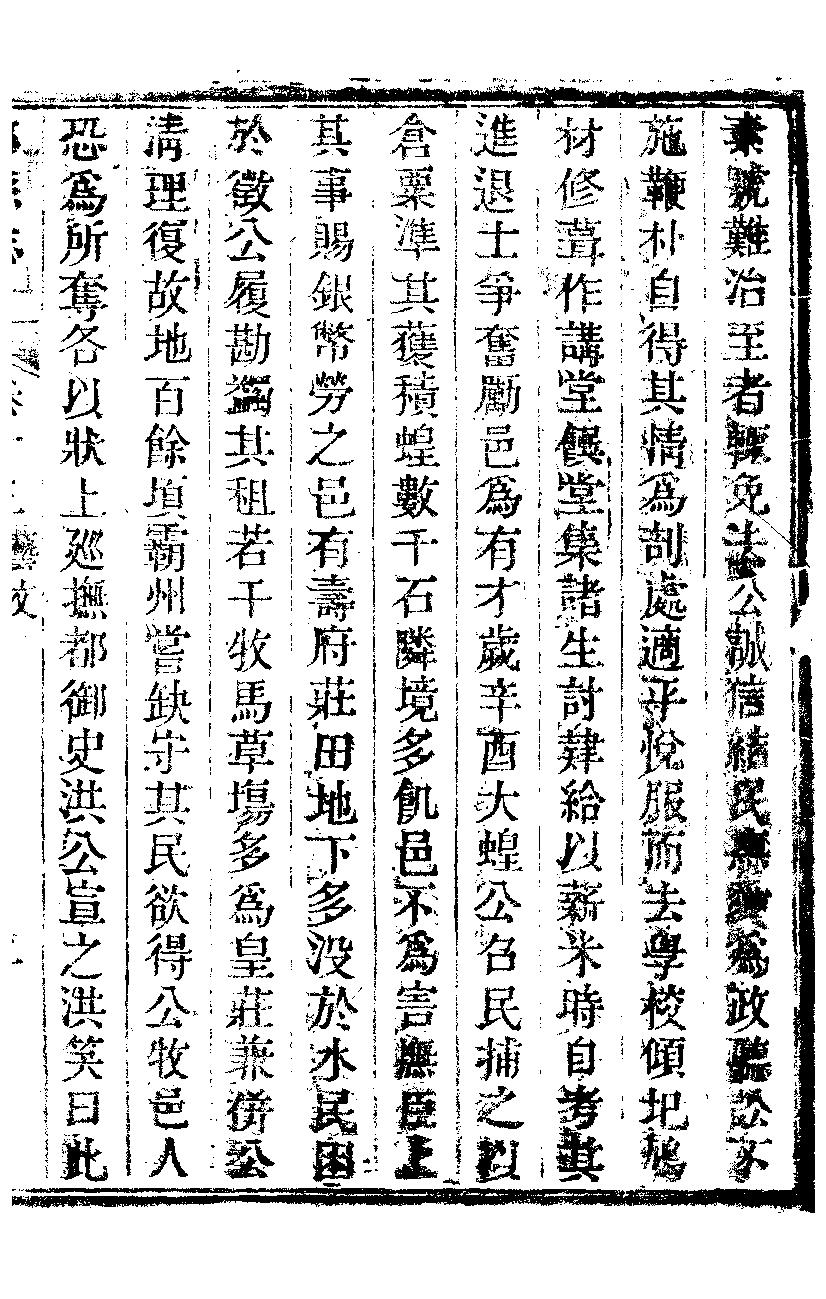 素號難治至者輒免去公誠信結民無變爲政聽訟不
施鞭朴自得其情爲剖處適平悅服而去學校傾圯鳩
材修葺作講堂饌堂集諸生討肄給以薪米時自考其
進退士爭奮勵邑爲有才歲辛酉大蝗公召民捕之以
倉粟準其獲積蝗數千石隣境多飢邑不爲害撫臣上
其事賜銀幣勞之邑有壽府莊田地下多没於水民困
於徵公履勘蠲其租若干牧馬草塲多爲皇莊兼併公
清理復故地百餘頃霸州嘗缺守其民欲得公牧邑人
恐爲所奪各以狀上廵撫都御史洪公宣之洪笑曰此